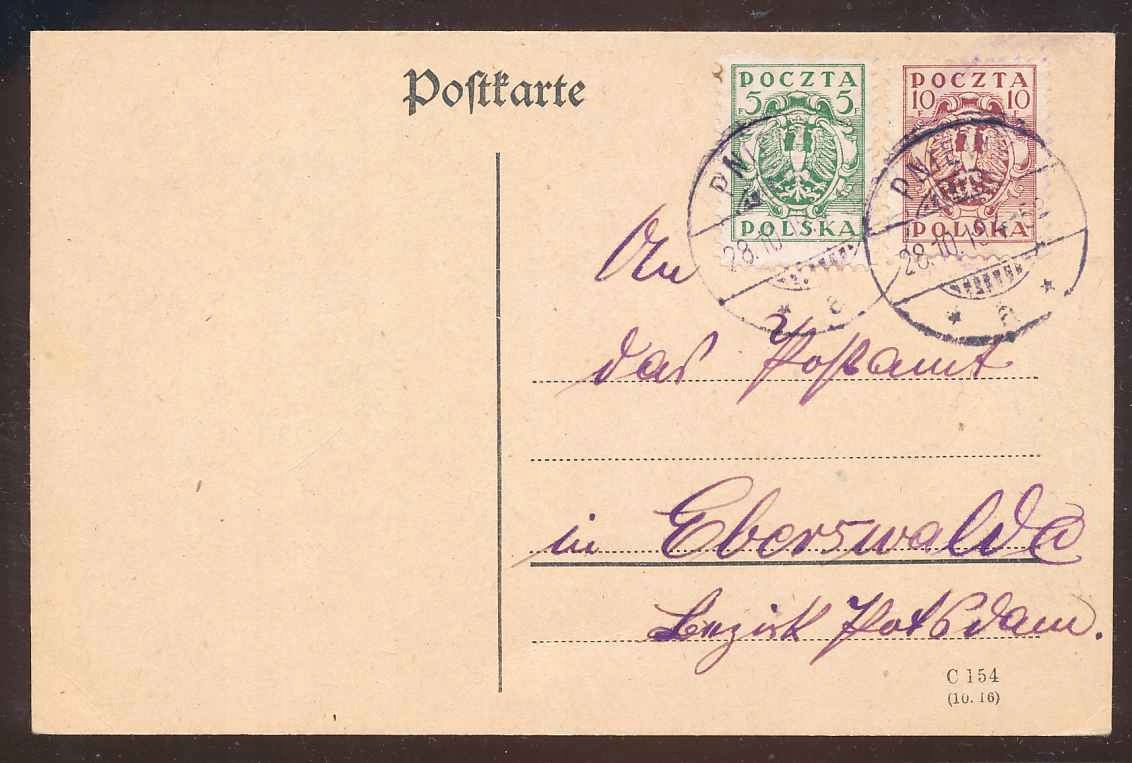 Postkarte
POCZTA
5 F 5 F
POLSKA
POCZTA
10 F 10 F
POLSKA
28.10.19
* a
28.10.19
* a *
An
das Postamt
in Eberswalde
Bezirk Potsdam.
C 154
(10. 16)